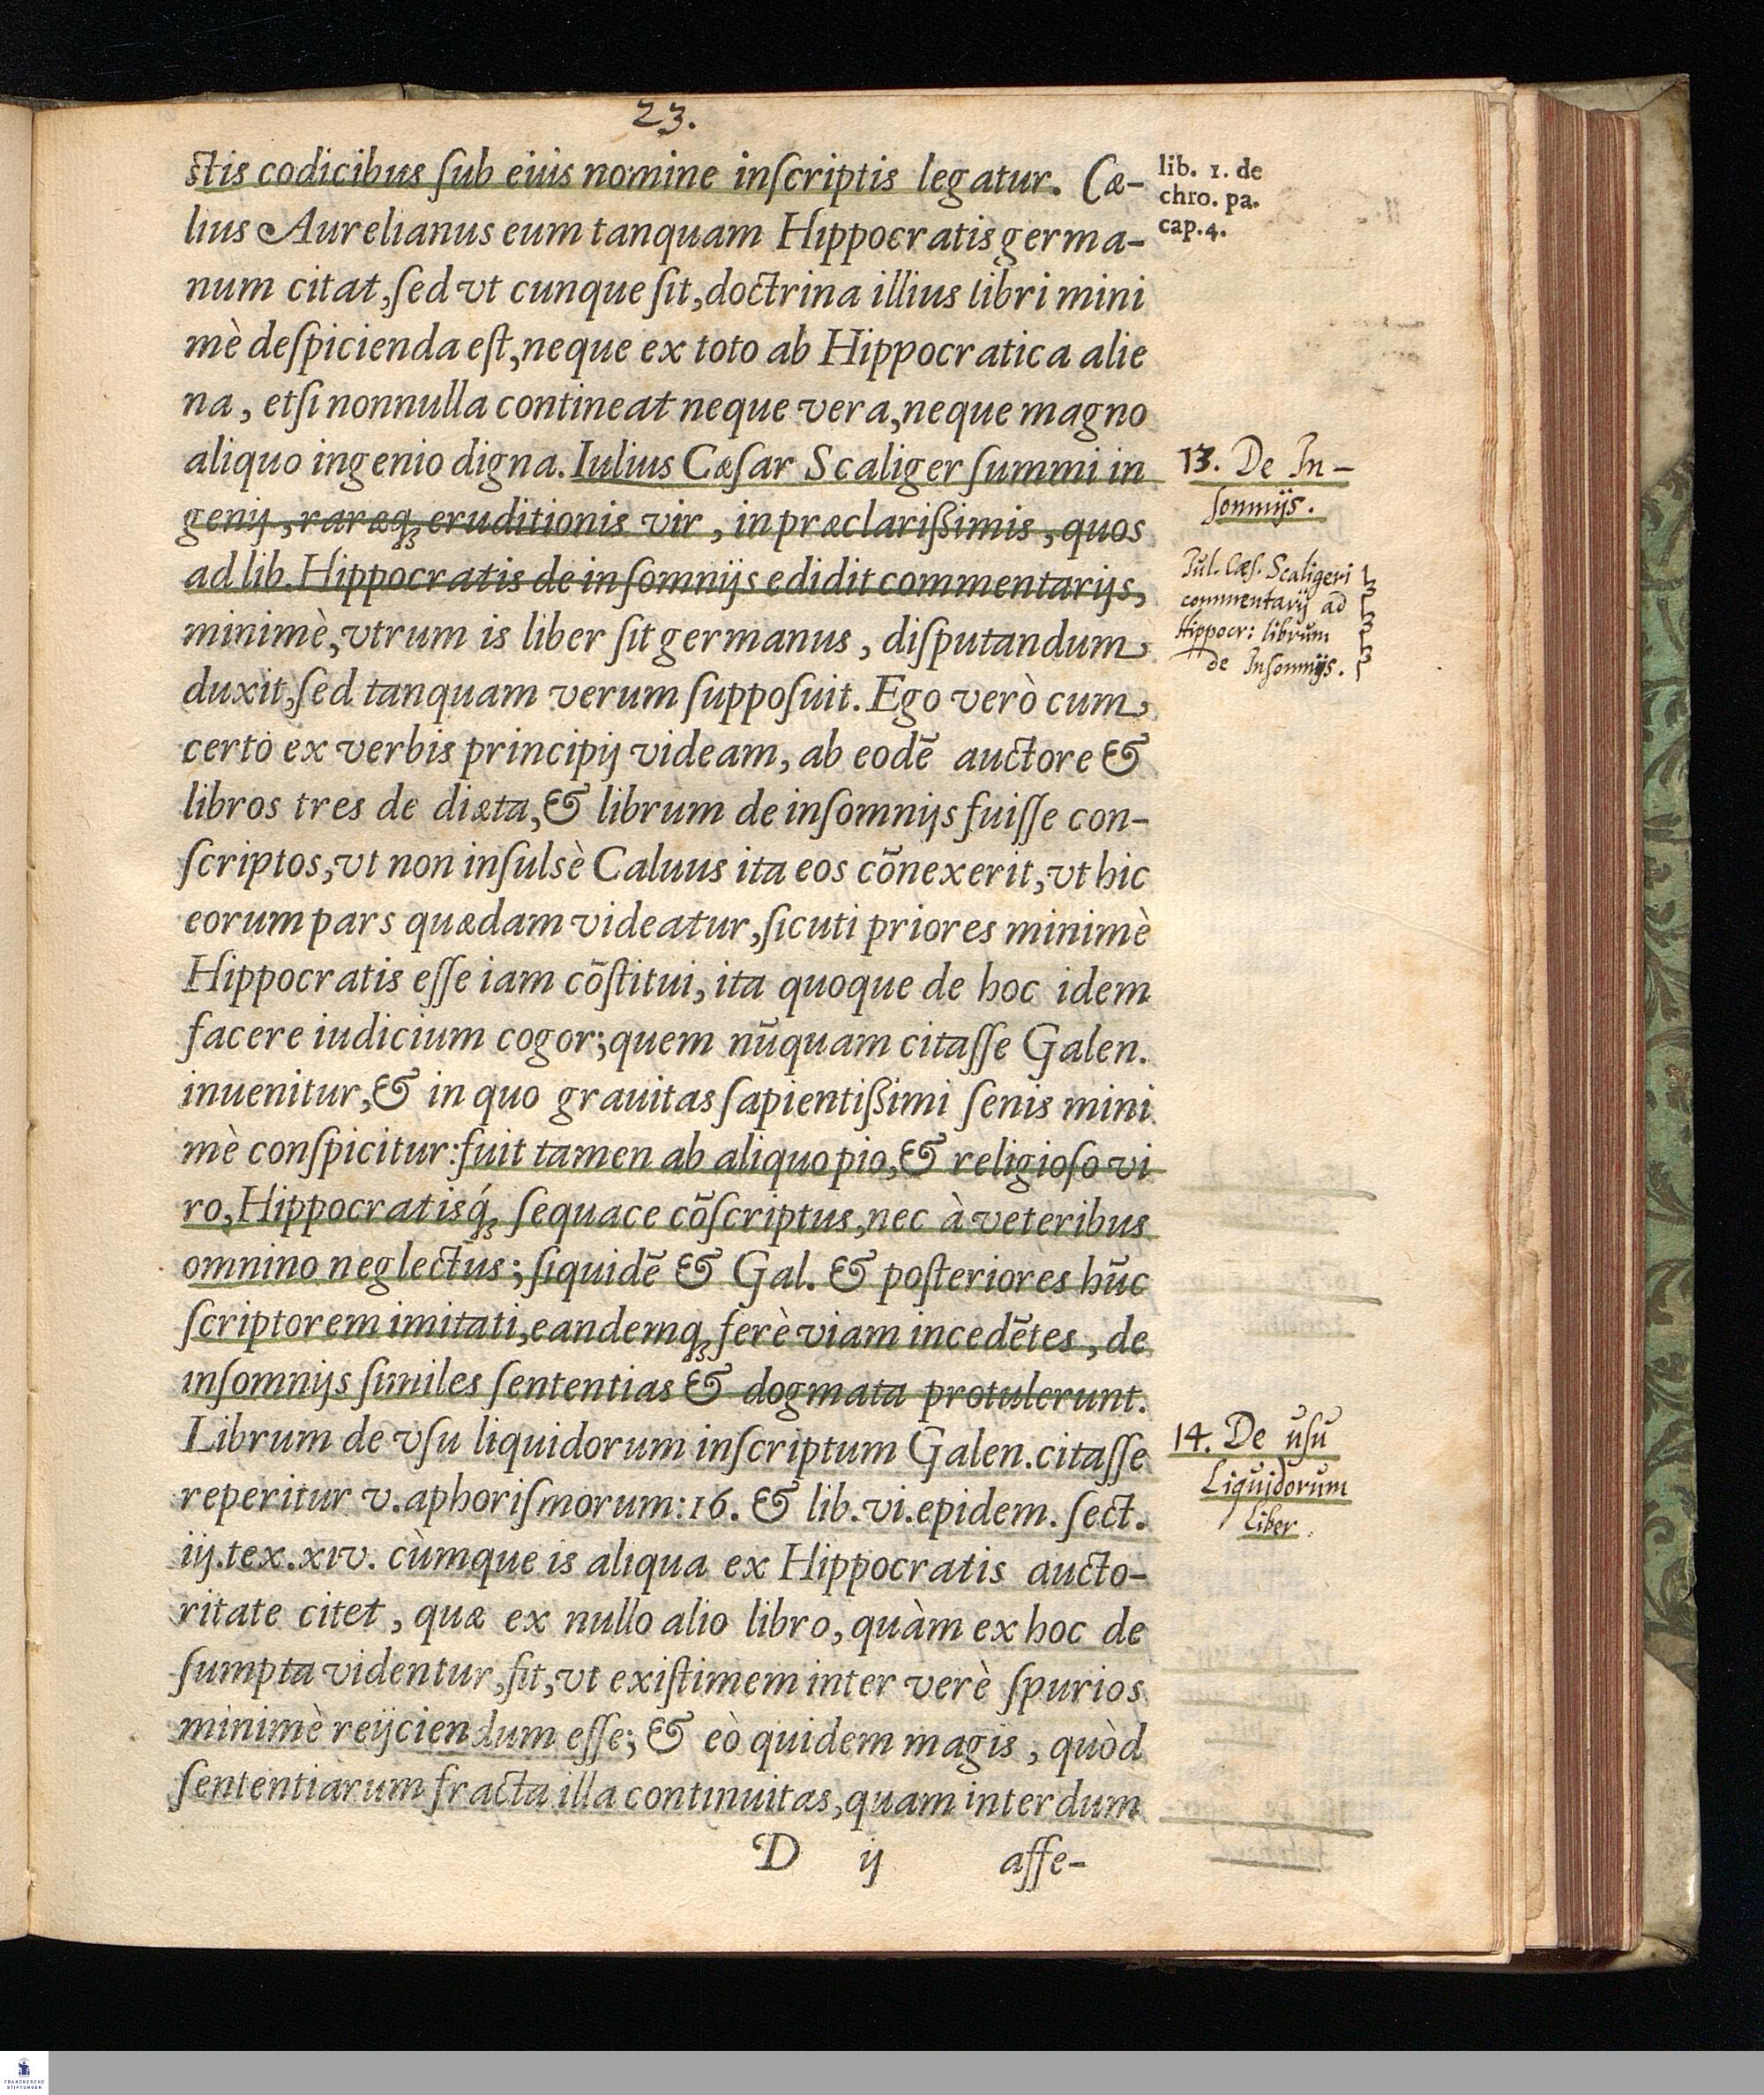 23.
ſtis codicibus ſub eius nomine inſcriptis legatur. Cæ-
lius Aurelianus eum tanquam Hippocratis germa-
num citat, ſed vt cunque ſit, doctrina illius libri mini
mè deſpicienda eſt, neque ex toto ab Hippocratica alie
na, etſi nonnulla contineat neque vera, neque magno
aliquo ingenio digna. Iulius Cæſar Scaliger ſummi in
genij, raræq́; eruditionis vir, in præclarißimis, quos
ad lib. Hippocratis de inſomnijs edidit commentarijs,
minimè, vtrum is liber ſit germanus, diſputandum
duxit, ſed tanquam verum ſuppoſuit. Ego verò cum
certo ex verbis principij videam, ab eodē auctore &
libros tres de diæta, & librum de inſomnijs fuiſſe con-
ſcriptos, vt non inſulsè Caluus ita eos cōnexerit, vt hic
eorum pars quædam videatur, ſicuti priores minimè
Hippocratis eſſe iam cōſtitui, ita quoque de hoc idem
facere iudicium cogor; quem nūquam citaſſe Galen.
inuenitur, & in quo grauitas ſapientißimi ſenis mini
mè conſpicitur: fuit tamen ab aliquo pio, & religioſo vi
ro, Hippocratisq́; ſequace cōſcriptus, nec à veteribus
omnino neglectus; ſiquidē & Gal. & poſteriores hūc
ſcriptorem imitati, eandemq; ferè viam incedētes, de
inſomnijs ſimiles ſententias & dogmata protulerunt.
Librum de vſu liquidorum inſcriptum Galen. citaſſe
reperitur v. aphoriſmorum: 16. & lib. vi. epidem. ſect.
iij. tex. xiv. cùmque is aliqua ex Hippocratis aucto-
ritate citet, quæ ex nullo alio libro, quàm ex hoc de
ſumpta videntur, fit, vt exiſtimem inter verè ſpurios
minimè reijciendum eſſe; & eò quidem magis, quòd
ſententiarum fracta illa continuitas, quam interdum
D ij aſſe-
lib. 1. de
chro. pa.
cap. 4.
13. De In-
ſomnijs.
Jul. Cæſ. Scaligeri
commentarij ad
Hippocr: librum
de Inſomnijs.
14. De uſu
Liquidorum
Liber.
FRANCKESCHE
STIFTUNGEN